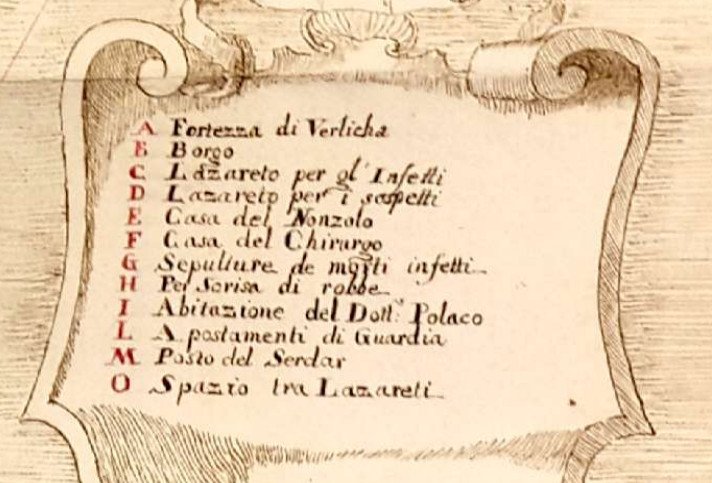 A Fortezza di Verlicha
B Borgo
C Lazareto per gl' Infetti
D Lazareto per i sospetti
E Casa del Nonzolo
F Casa del Chirurgo
G Sepulture de morti infetti
H Per Sorisa di robbe
I Abitazione del Dott.r Polaco
L Apostamenti di Guardia
M Posto del Serdar
O Spazio tra Lazareti